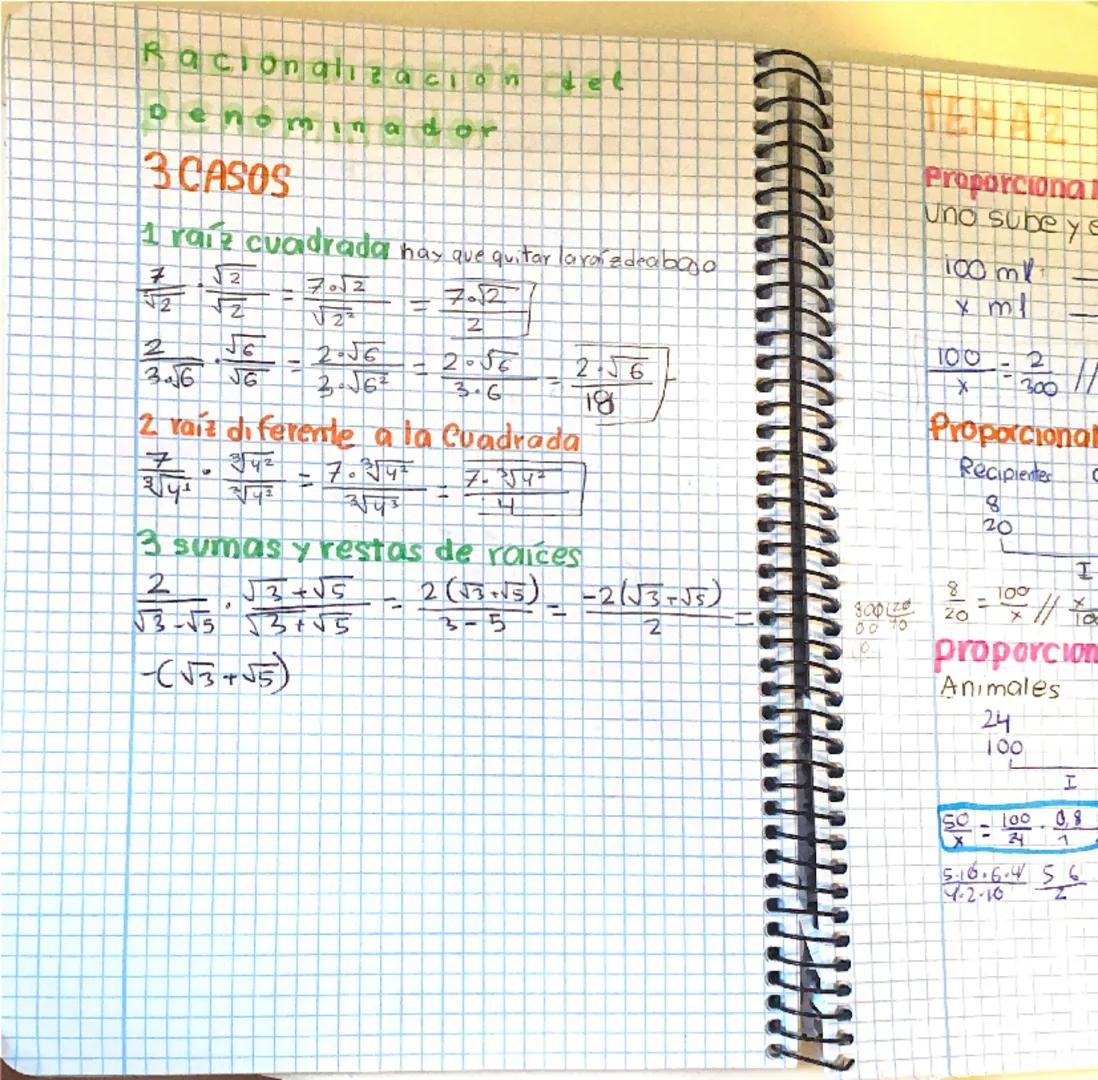 Racionalización del
Denominador
3 CASOS
1 raíz cuadrada hay que quitar la raíz de abajo
7/√2 · √2/√2 = 7·√2/√2² = 7·√2/2
2/3·√6 · √6/√6 = 2·√6/3·√6² = 2·√6/3·6 = 2·√6/18
2 raíz diferente a la Cuadrada
7/∛4¹ · ∛4²/∛4² = 7·∛4²/∛4³ = 7·∛4²/4
3 sumas y restas de raíces
2/√3-√5 · √3+√5/√3+√5 = 2(√3+√5)/3-5 = -2(√3+√5)/2 =
-(√3+√5)
TEMA 2
Uno sube y
100 ml
x ml
100/x = 2/300 //
Recipientes
8
20
I
8/20 = 100/x //
Animales
24
100
I
50/x = 100/24 · 0,8/1
5·10·6·4/4·2·10 56/2